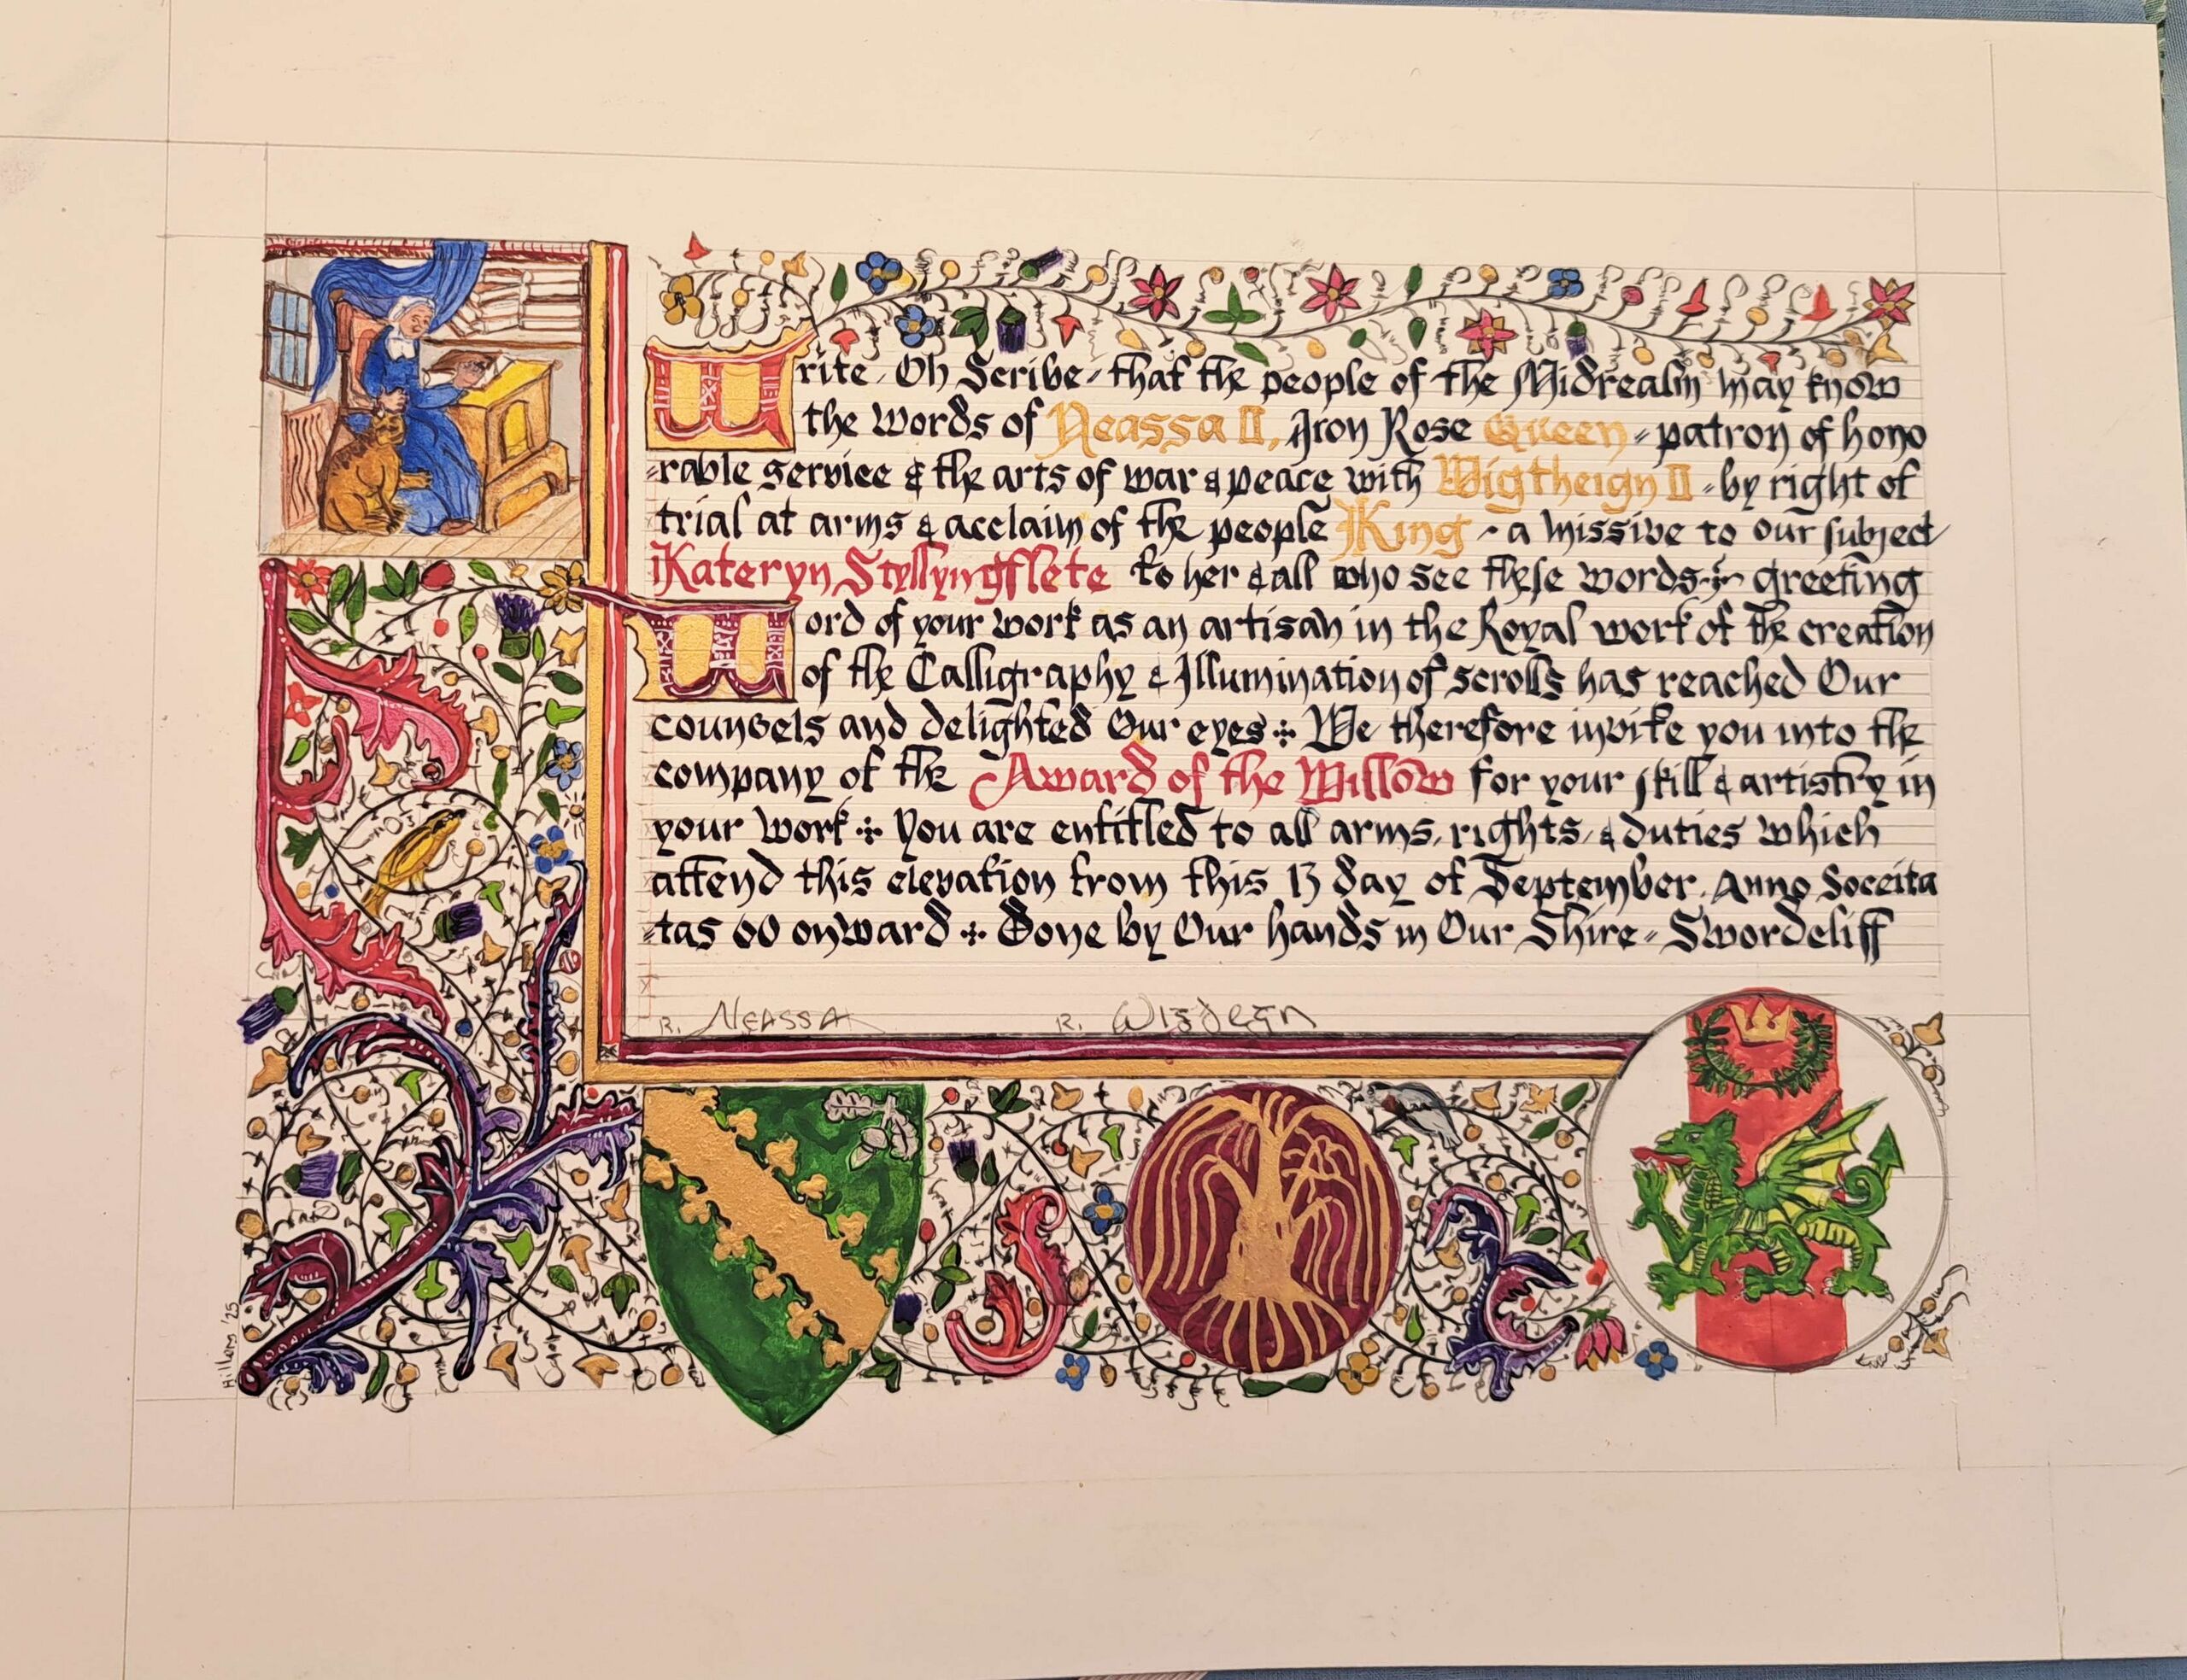 Write, Oh Scribe, that the people of the Midrealm may know
the words of Neassa II, Iron Rose Queen - patron of hono
-rable service & the arts of war & peace with Wigtheign II - by right of
trial at arms & acclaim of the people King - a missive to our subject
Kateryn Styllyngflete to her & all who see these words greeting
Word of your work as an artisan in the Royal work of the creation
of the Calligraphy & Illumination of scrolls has reached Our
counsels and delighted Our eyes We therefore invite you into the
company of the Award of the Willow for your skill & artistry in
your work You are entitled to all arms, rights, & duties which
attend this elevation from this 13 day of September, Anno Soceita
-tas 60 onward Done by Our hands in Our Shire - Swordcliff
R. NEASSA R.
Hillers '25